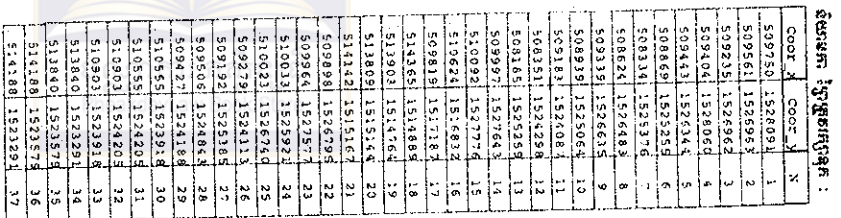 Coor X Coor Y N
509750 1528091 1
509561 1526953 2
509235 1526962 3
509404 1528060 4
509443 1526344 5
508869 1525255 6
508334 1525376 7
508624 1526483 8
509339 1526635 9
508939 1525064 10
509183 1524084 11
508351 1524298 12
508185 1525259 13
509997 1527643 14
510092 1527776 15
510624 1516832 16
509819 1517183 17
514365 1514889 18
513903 1514764 19
513809 1515144 20
514142 1515167 21
509898 1526795 22
509964 1527577 23
510033 1525921 24
510023 1526740 25
509279 1524313 26
509192 1525385 27
509506 1524843 28
509427 1524188 29
510565 1523918 30
510555 1524205 31
510903 1524205 32
510903 1523918 33
513840 1523291 34
513840 1523579 35
514188 1523579 36
514188 1523291 37